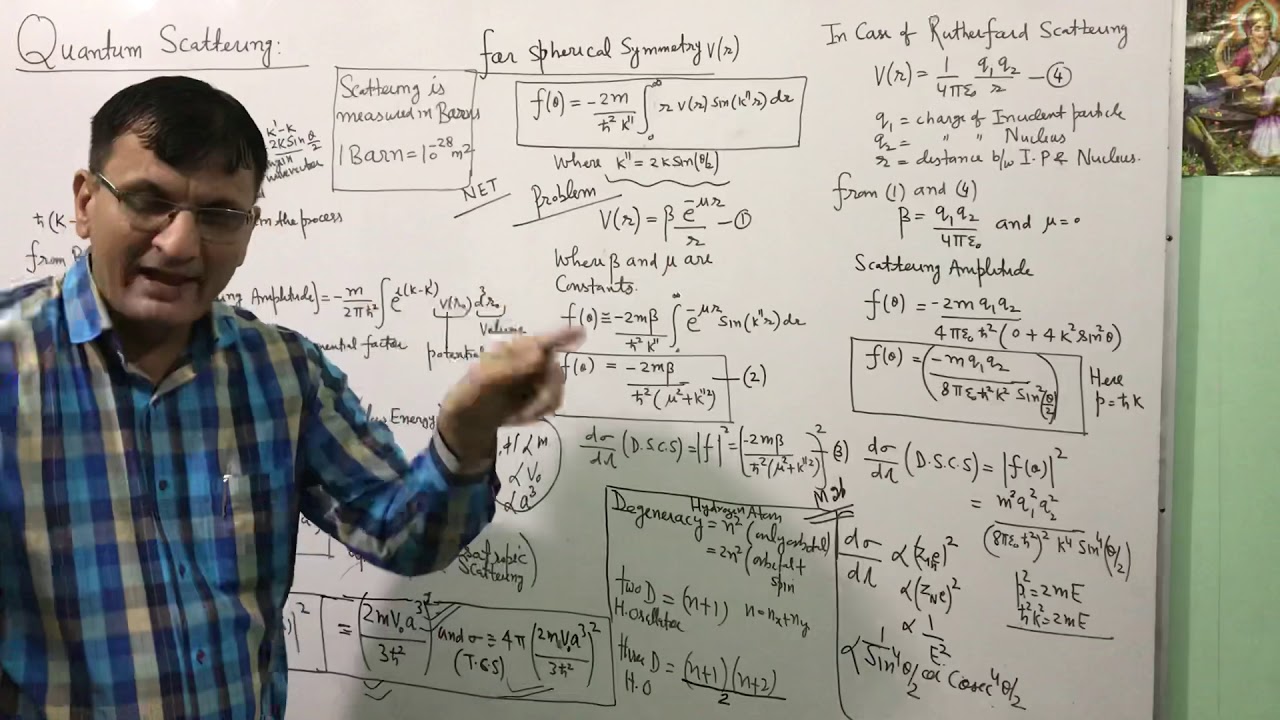 Quantum Scattering:
Scattering is
measured in Barns
1 Barn = 10^-28 m^2
k'-k
2k sin θ/2
the process
ħ(k-
from B
Amplitude] = -m/2πħ^2 ∫ e^i(k-k') v(r₀) d^3r₀
factor
potential
Volume
Energy
f ∝ m
∝ V₀
∝ a^3
Scattering)
|^2 ≅ (2mV₀a^3/3ħ^2)^2 and σ ≅ 4π (2mV₀a^3/3ħ^2)^2
(T.C.S)
for Spherical Symmetry V(r)
f(θ) = -2m/ħ^2 k'' ∫₀^∞ r v(r) sin(k''r) dr
where k'' = 2k sin(θ/2)
NET
Problem
V(r) = β e^-μr/r — (1)
Where β and μ are
Constants.
f(θ) ≅ -2mβ/ħ^2 k'' ∫₀^∞ e^-μr sin(k''r) dr
f(θ) = -2mβ/ħ^2(μ^2+k''^2) — (2)
dσ/dΩ (D.S.C.S) = |f|^2 = (-2mβ/ħ^2(μ^2+k''^2))^2 — (3)
Hydrogen Atom
Degeneracy = n^2 (only orbital)
= 2n^2 (orbital +
spin
two D = (n+1) n = nx+ny
H. oscillator
three D = (n+1)(n+2)/2
H.O
In Case of Rutherford Scattering
V(r) = 1/4πε₀ q₁q₂/r — (4)
q₁ = charge of Incident particle
q₂ = " " Nucleus
r = distance b/w I.P & Nucleus.
from (1) and (4)
β = q₁q₂/4πε₀ and μ=0
Scattering Amplitude
f(θ) = -2m q₁q₂/4πε₀ħ^2(0+4k^2 sin^2 θ)
f(θ) = (-m q₁q₂/8πε₀ħ^2k^2 sin^2 θ/2)
Here
p=ħk
dσ/dΩ (D.S.C.S) = |f(θ)|^2
= m^2 q₁^2 q₂^2/(8πε₀ħ^2)^2 k^4 sin^4(θ/2)
dσ/dΩ ∝
∝ (Z_N e)^2
∝ 1/E^2
∝ 1/Sin^4 θ/2 or Cosec^4 θ/2
p^2 = 2mE
ħ^2k^2 = 2mE